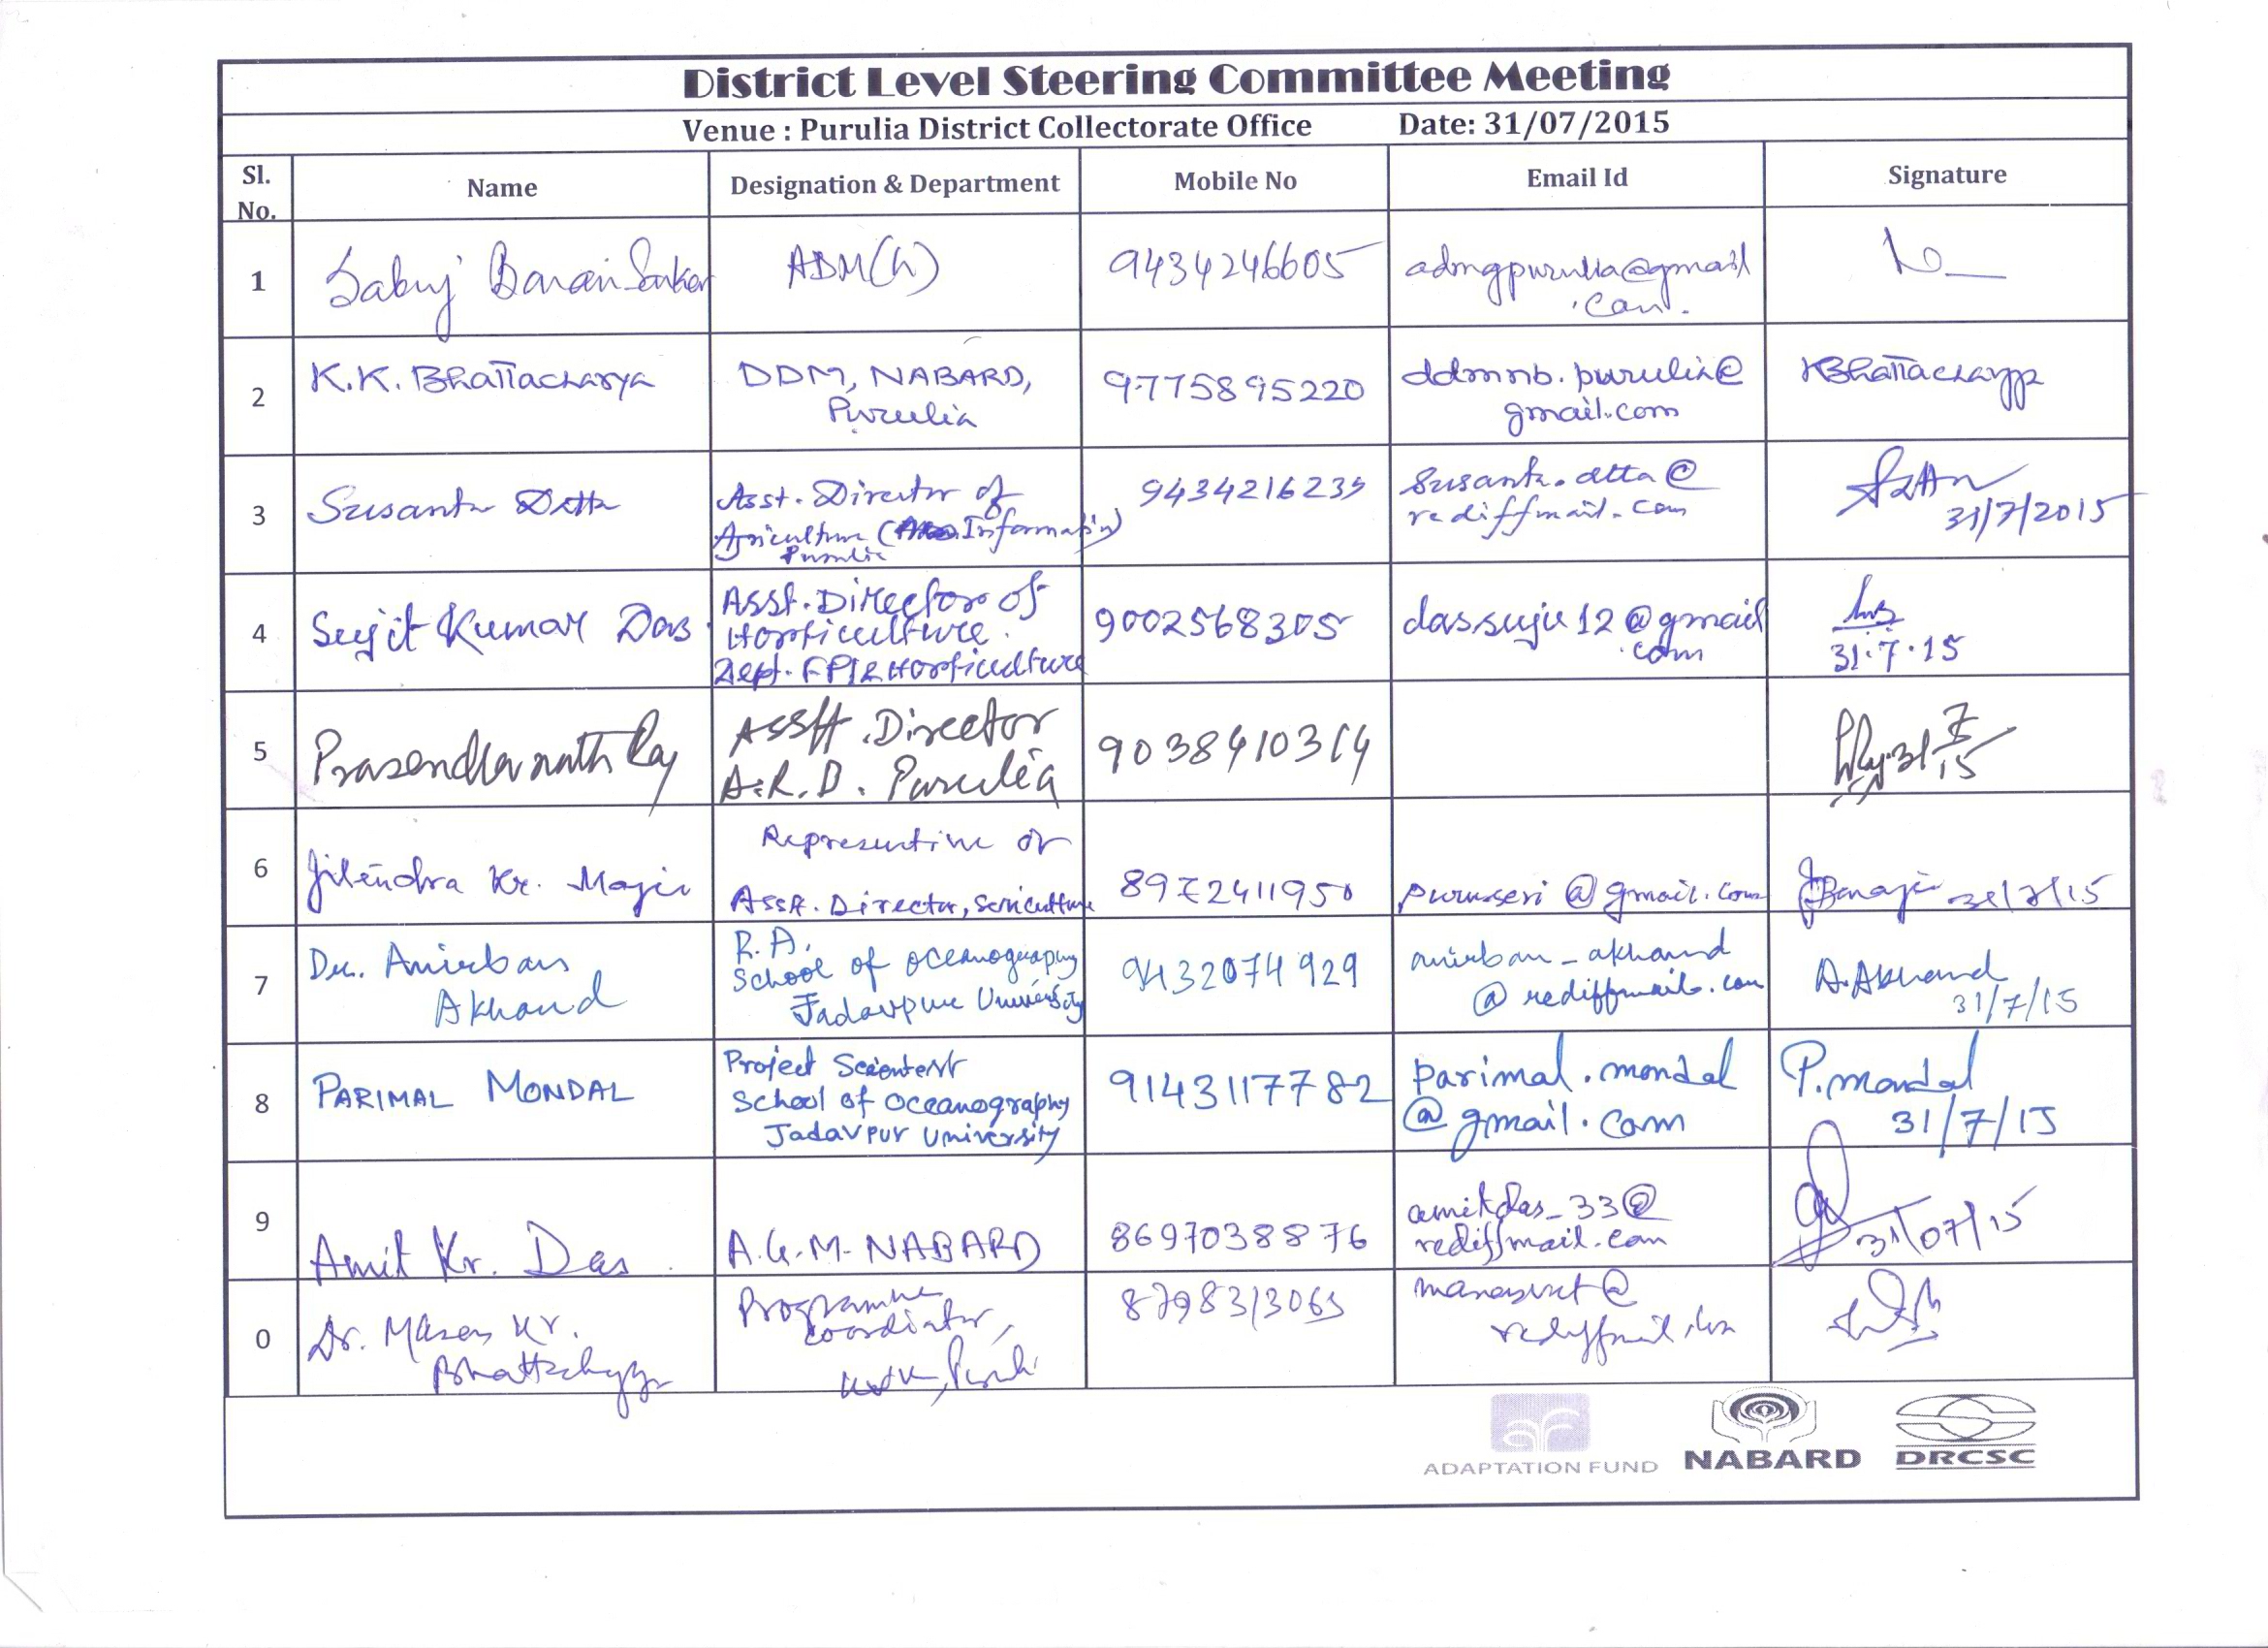 District Level Steering Committee Meeting
Venue : Purulia District Collectorate Office Date: 31/07/2015
Sl. No. Name Designation & Department Mobile No Email Id Signature
1 Sabuj Baran Sarkar ADM(G) 9434246605 admgpurulia@gmail
.com.
2 K.K. Bhattacharya DDM, NABARD, 9775895220 ddmnb.purulia@ KBhattacharyya
Purulia gmail.com
3 Susanta Dutta Asst. Director of 9434216239 susanta.dtta@
Agriculture (Information) rediffmail.com 31/7/2015
Purulia
4 Sujit Kumar Das Asst. Director of 9002568305 dassujit12@gmail
Horticulture. .com 31.7.15
Dept. FPI & Horticulture
5 Prasendra nath Ray Asstt. Director 9038410314
A.R.D. Purulia
6 Jitendra Kr. Majie Representive of 8972411950 puruseri@gmail.com
Asst. Director, Sericulture
7 Dr. Anirban R.A. 9432074929 anirban_akhand A. Akhand
Akhand School of Oceanography @rediffmail.com 31/7/15
Jadavpur University
8 PARIMAL MONDAL Project Scientist 9143117782 parimal.mondal P. Mondal
School of Oceanography @gmail.com 31/7/15
Jadavpur University
9 Amit Kr. Das A.G.M. NABARD 8697038876 amitdas_33@ 31/07/15
rediffmail.com
0 Dr. Manas Kr. Programme
Bhattacharyya Coordinator,
KVK,
ADAPTATION FUND NABARD DRCSC